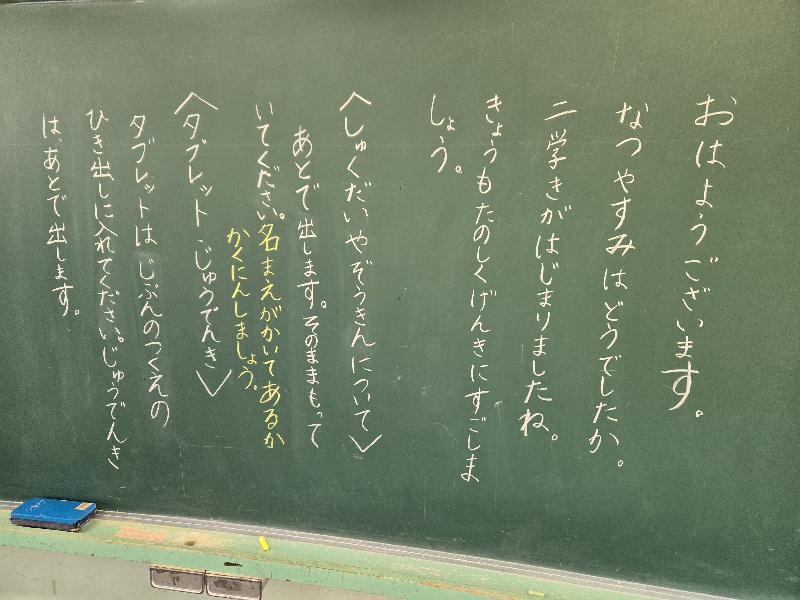 おはようございます。
なつやすみはどうでしたか。
二学きがはじまりましたね。
きょうもたのしくげんきにすごしま
しょう。
〈しゅくだいやぞうきんについて〉
あとで出します。そのままもって
いてください。名まえがかいてあるか
かくにんしましょう。
〈タブレット・じゅうでんき〉
タブレットはじぶんのつくえの
ひき出しに入れてください。じゅうでんき
は、あとで出します。